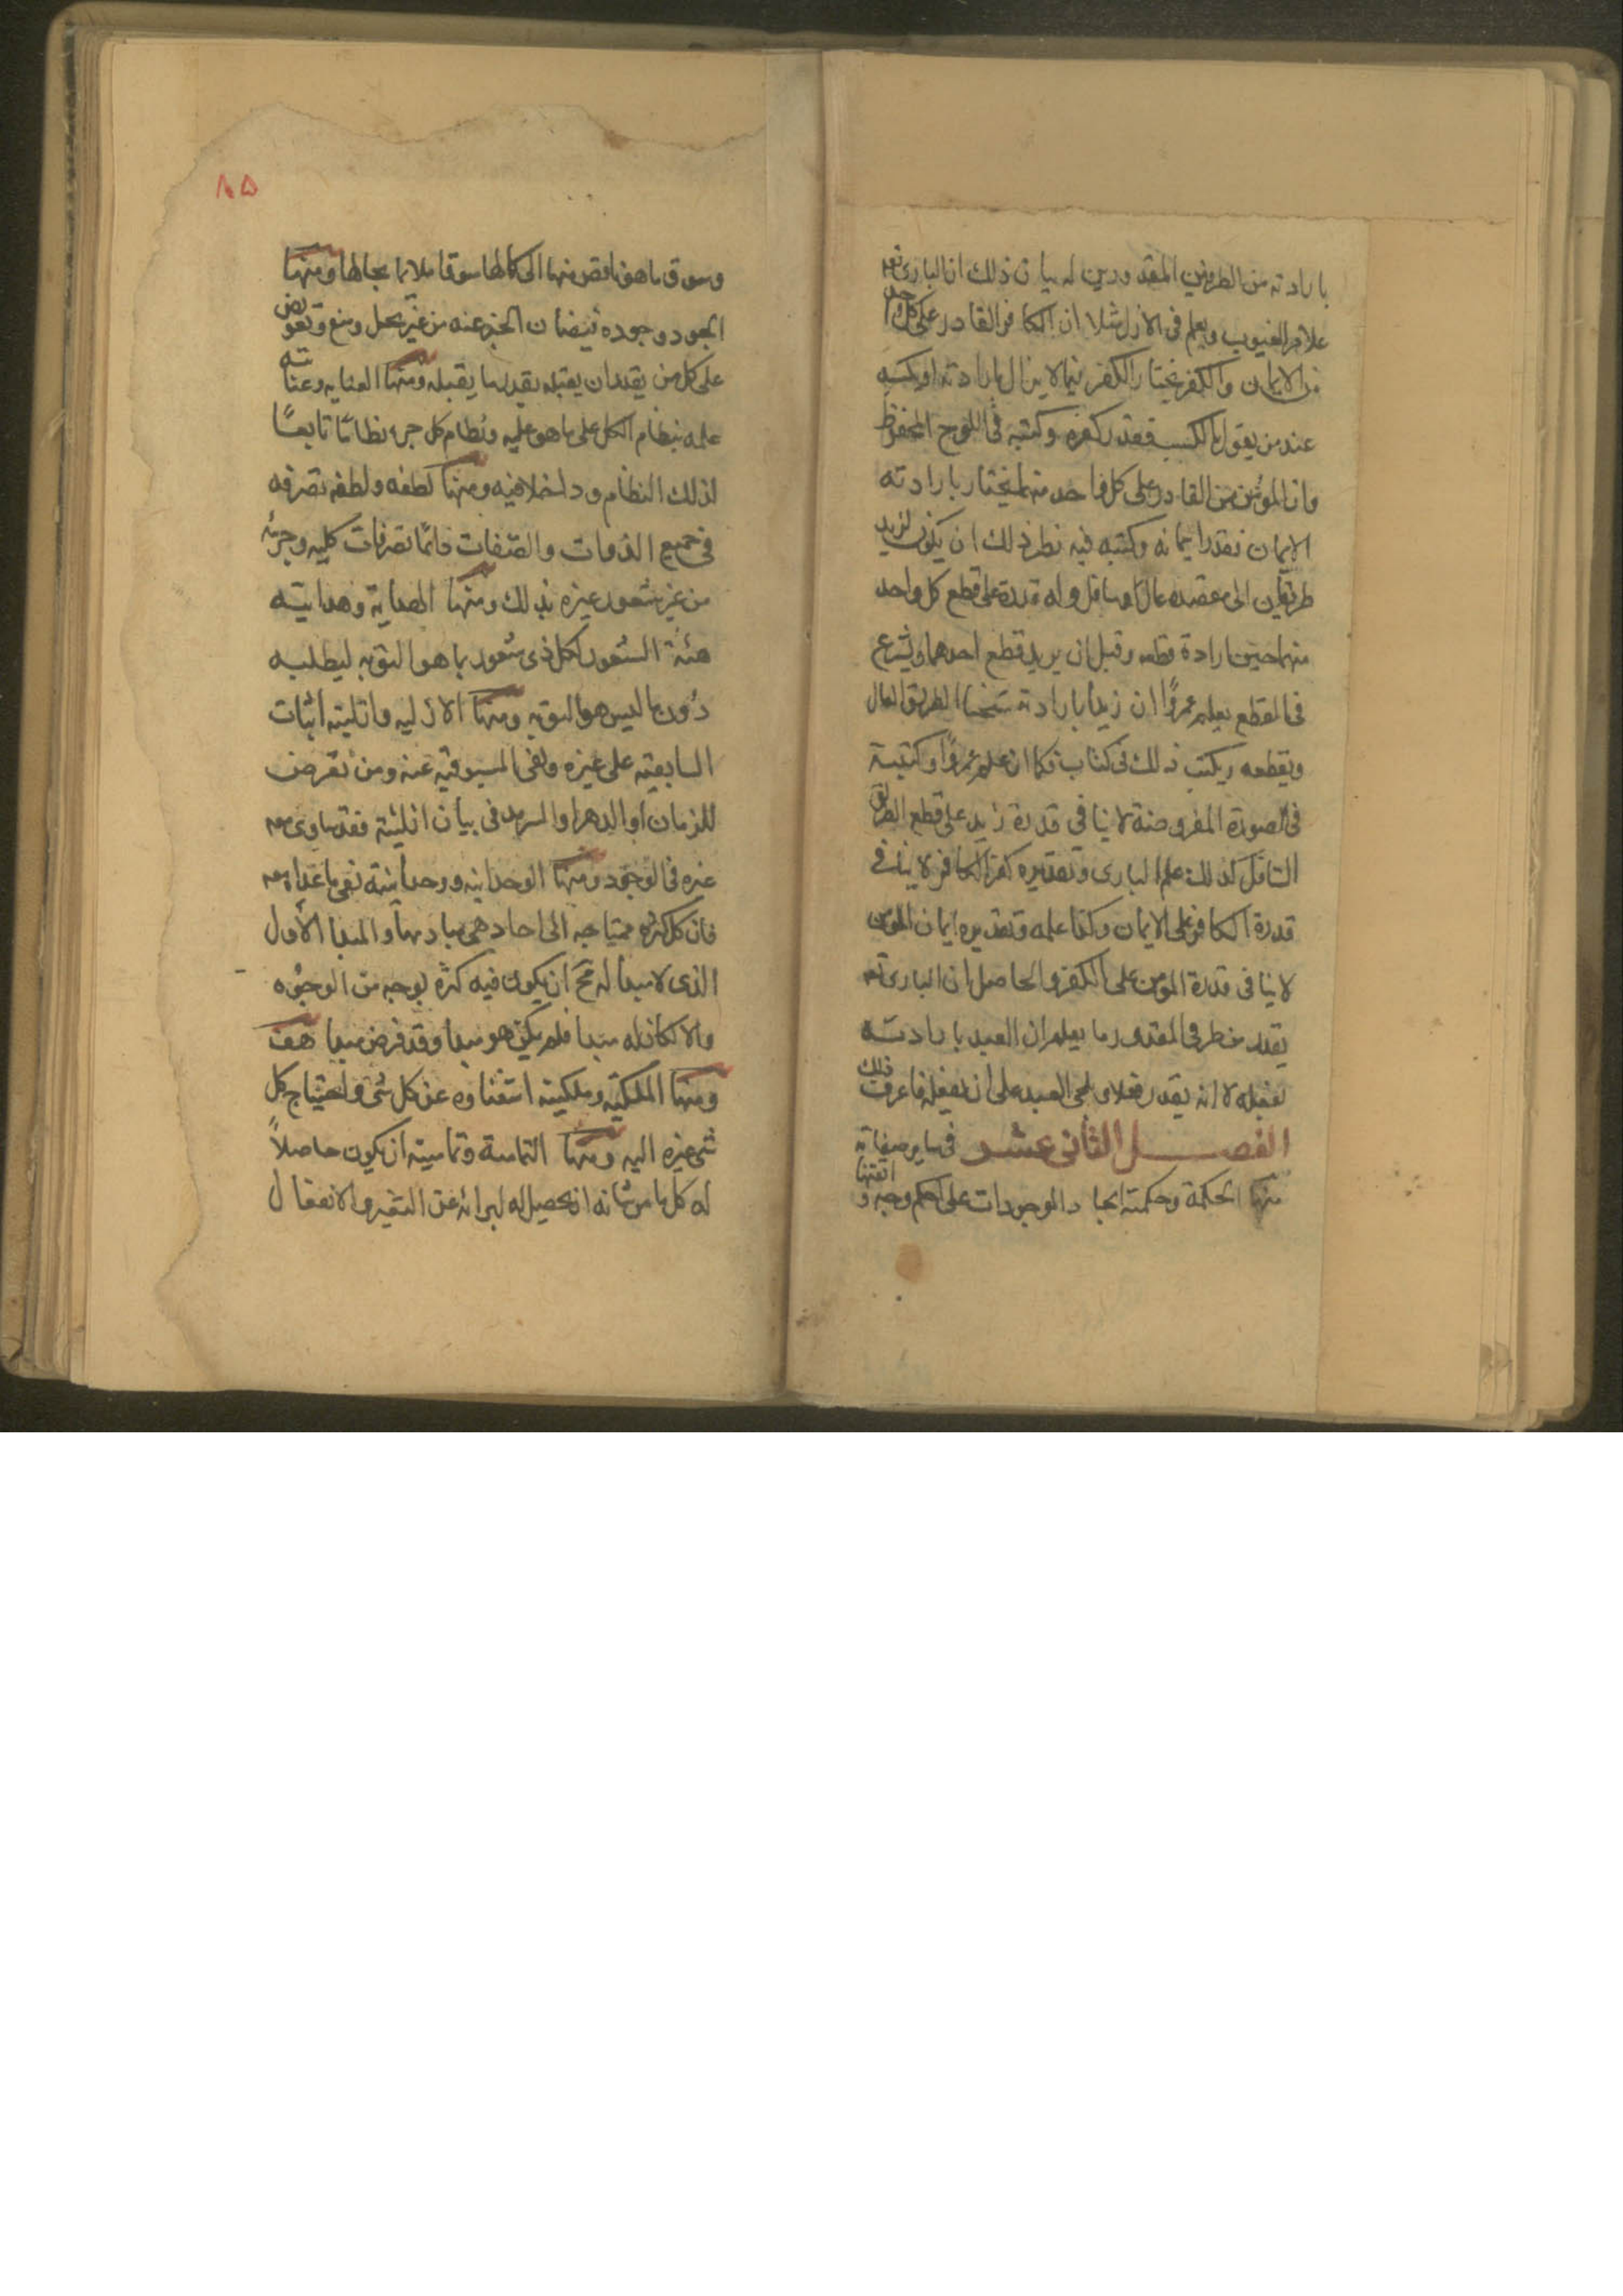 بارادته من الطرفين المقدورين له بيان ذلك ان البارى تعم
علام الغيوب ويعلم فى الازل مثلا ان الكافر القادر على كل واحد
من الايمان والكفر يختار الكفر فيما لا يزال بارادته او بكسبه
عند من يقول بالكسب فقدر كفره وكتبه فى اللوح المحفوظ
وان المؤمن القادر على كل واحد منهما يختار بارادته
الايمان فقدر ايمانه وكتبه فيه نظير ذلك ان يكون لزيد
طريقان الى مقصده عال وسافل وله قدرة على قطع كل واحد
منهما حين ارادة قطعه وقبل ان يريد قطع احدهما ويشرع
فى القطع يعلم عمرو ان زيدا بارادته سيختار الطريق العال
ويقطعه ويكتب ذلك فى كتاب فكما ان علم عمرو وكتبته
فى الصورة المفروضة لا ينافى قدرة زيد على قطع الطريق
السافل كذلك علم البارى وتقديره كفر الكافر لا ينافى
قدرة الكافر على الايمان وكذا علمه وتقديره ايمان المؤمن
لا ينافى قدرة المؤمن على الكفر والحاصل ان البارى تعم
يقدر من طرفى المقدور ما يعلم ان العبد بارادته
يفعله لا انه يقدر فعلا ويلجى العبد على ان يفعله فاعرف ذلك
الفصل الثانى عشر فى ساير صفاته
منها الحكمة وحكمته ايجاد الموجودات على احكم وجه و اتقنها
وسوق ما هو ناقص منها الى كمالها سوقا ملايما بحالها ومنها
الجود وجوده فيضان الخير عنه من غير بخل ومنع وتعويض
على كل من يقدر ان يقبله بقدر ما يقبله ومنها العنايه وعنايته
علمه بنظام الكل على ما هو عليه ونظام كل جزء نظاما تابعًا
لذلك النظام وداخلا فيه ومنها لطفه ولطفه تصرفه
فى جميع الذوات والصفات دائما تصرفات كليه وجزئيه
من غير شعور غيره بذلك ومنها الهداية وهدايته
هبة الشعور لكل ذى شعور بما هو اليق به ليطلبه
دون ما ليس هو اليق به ومنها الازليه وازليته اثبات
السابقية على غيره ونفى المسبوقية عنه ومن تعرض
للزمان او الدهر او السرمد فى بيان ازليته فقد ساوى معه
غيره فى الوجود ومنها الوحدانيه ووحدانيته نفى ما عداه معه
فان كل كثرة محتاجه الى احاد هى مباديها والمبدا الاول
الذى لا مبدأ له مح ان يكون فيه كثرة بوجه من الوجوه
والا لكان له مبدا فلم يكن هو مبدا وقد فرض مبدا هف
ومنها الملكيه وملكيته استغناؤه عن كل شئ واحتياج كل
شئ غيره اليه ومنها التمامية وتماميته ان يكون حاصلاً
له كل ما من شانه ان يحصل له لبرائه عن التغير والانفعال